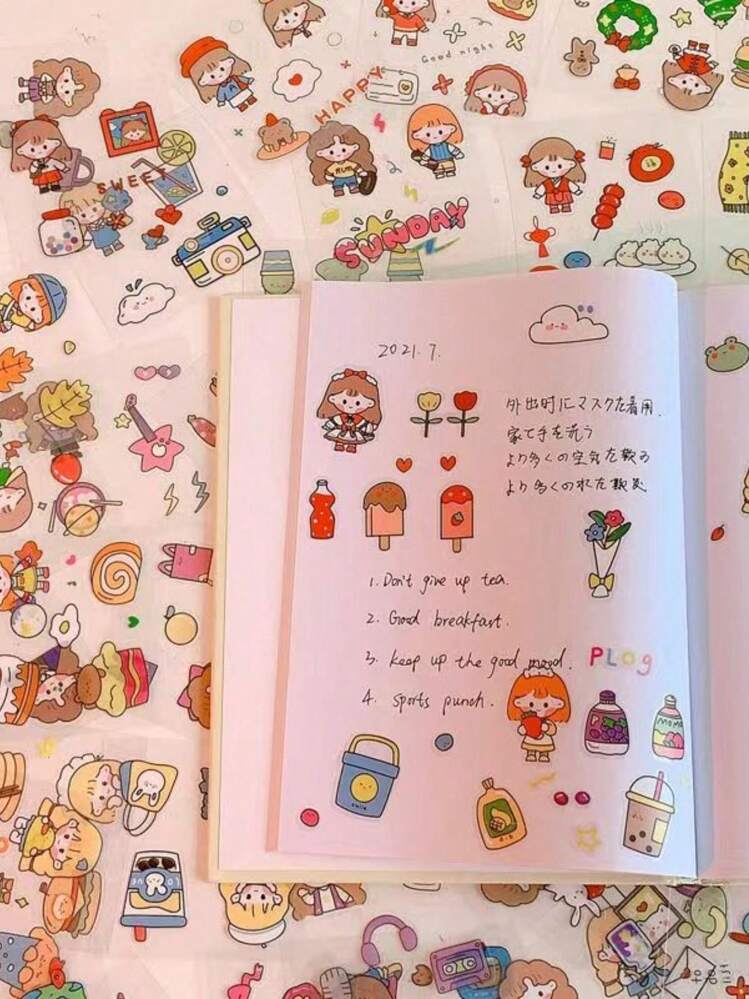 Good night
HAPPY
SWEET
SUNDAY
2021.7.
外出时にマスクを着用.
家で手を洗う
より多くの空気を
より多くの
1. Don't give up tea.
2. Good breakfast.
3. keep up the good mood. PLOg
4. sports punch.
MOMO
smile
to do list